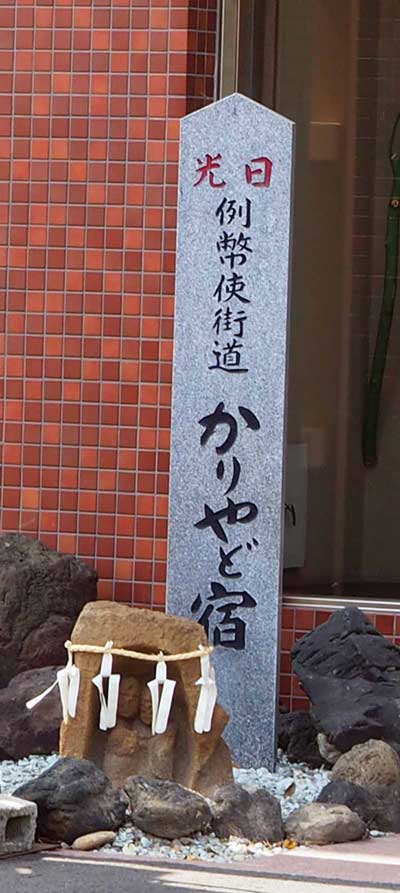 日光
例幣使街道
かりやど宿